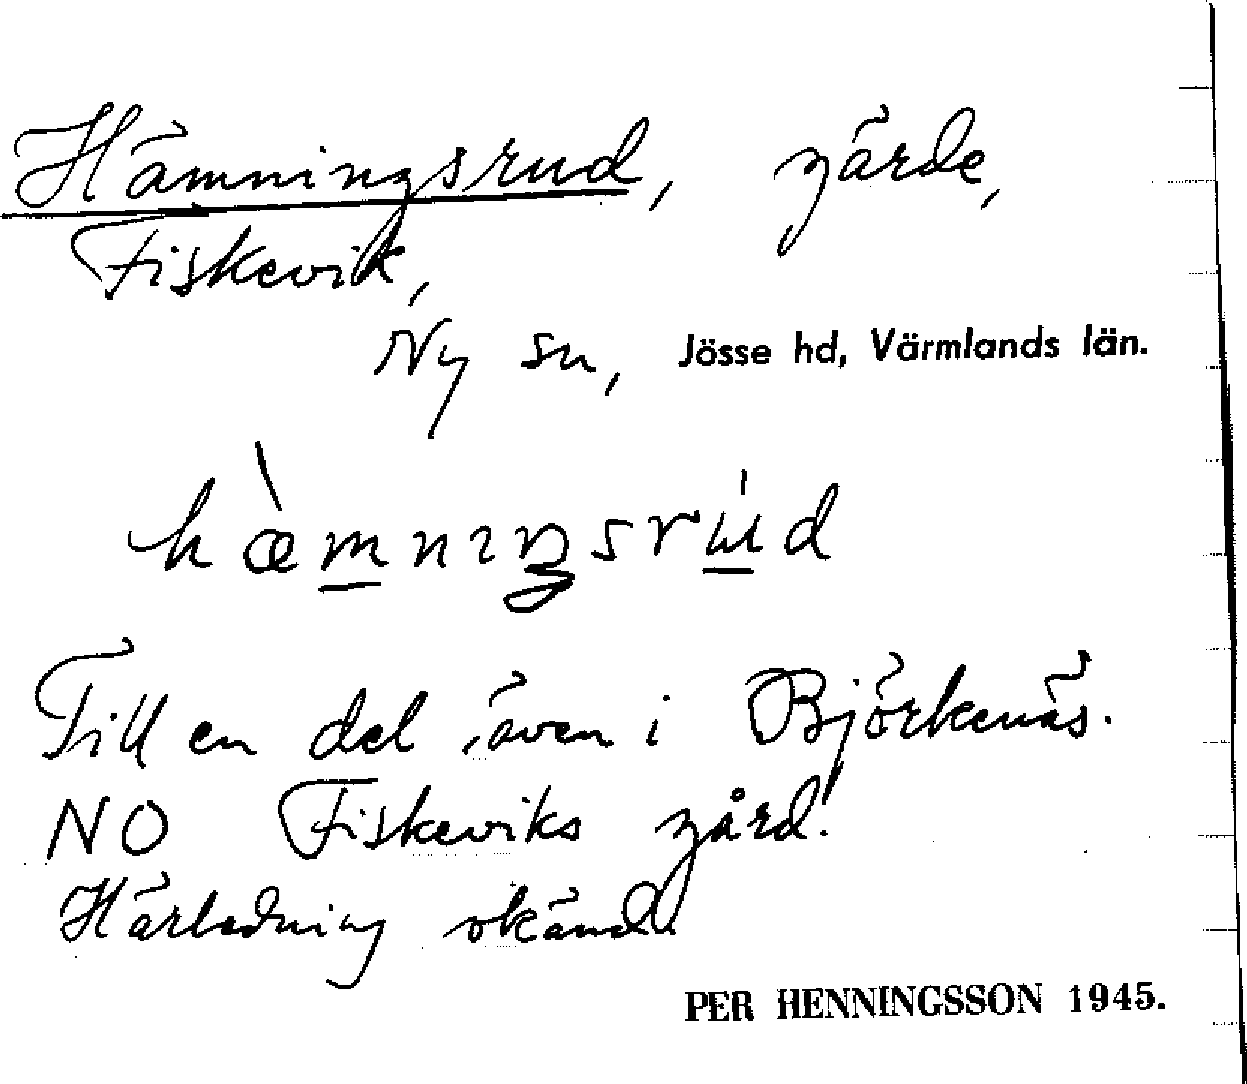 Hämningsrud, gärde,
Fiskevik,
Ny sn, Jösse hd, Värmlands län.
hæ̀mnıŋsru̍d
Till en del även i Björkenäs.
NO Fiskeviks gård.
Härledning okänd.
PER HENNINGSSON 1945.